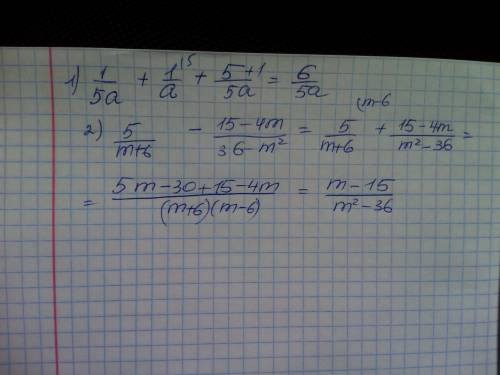 1) 1/5a + 1/a ⁽⁵ + 5+1/5a = 6/5a
2) 5/m+6 - 15-4m/36-m² = 5/m+6 (m-6 + 15-4m/m²-36 =
= 5m-30+15-4m/(m+6)(m-6) = m-15/m²-36